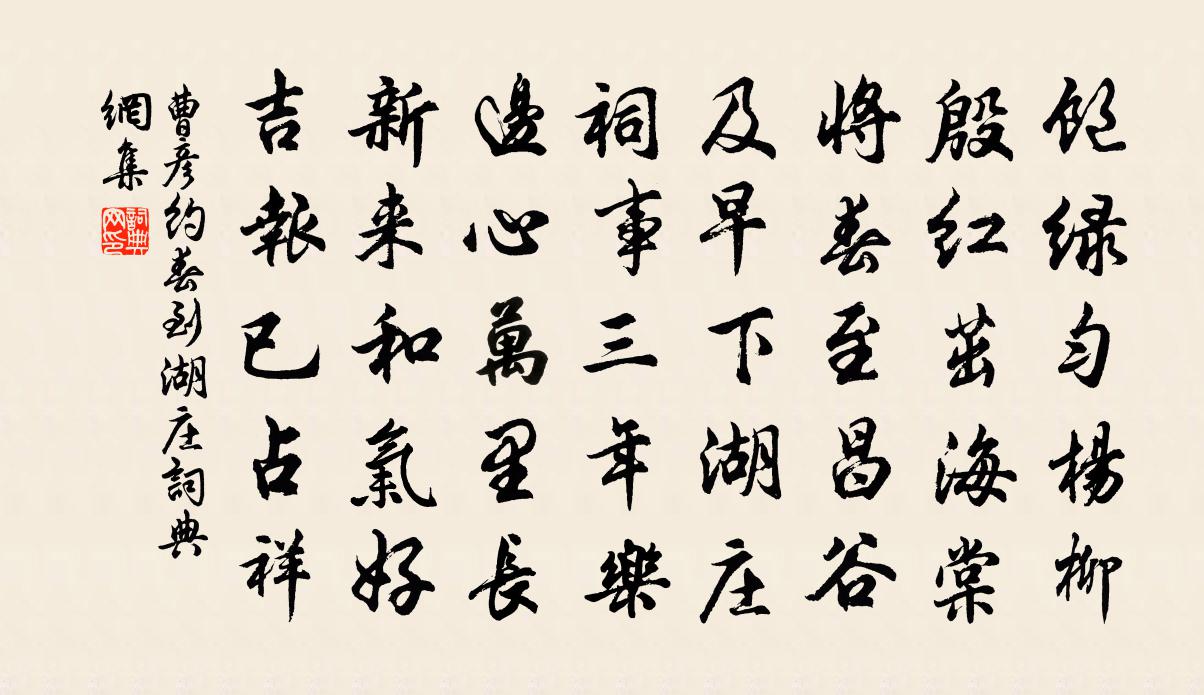 饱绿匀杨柳
殷红茁海棠
将春至昌谷
及早下湖庄
祠事三年乐
边心万里长
新来和气好
吉报已占祥
曹彦约春到湖庄词典
网集
词典
网印